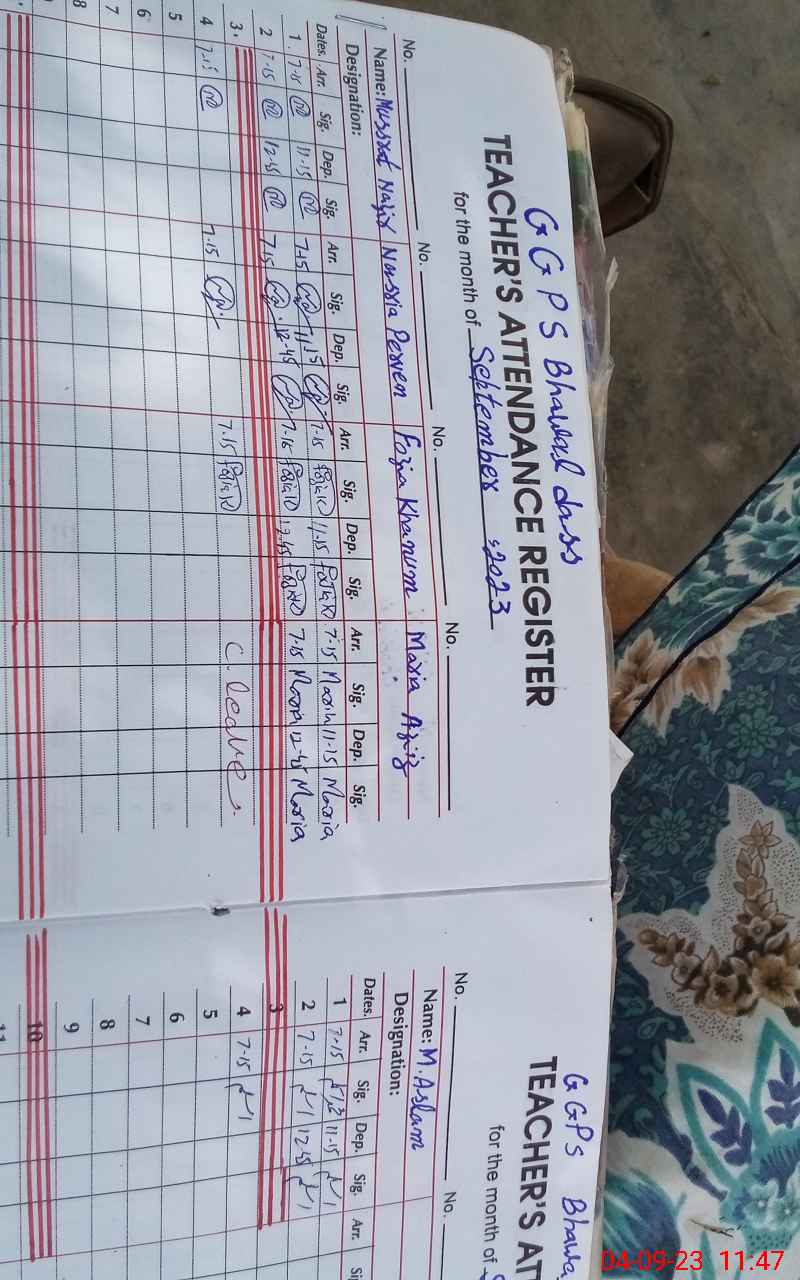 G G P S Bhawal dass
TEACHER'S ATTENDANCE REGISTER
for the month of September, 2023
No. No. No. No.
Name: Mussrat Nazir Nassia Perven Fozia Khanum Maria Aziz
Designation:
Dates. Arr. Sig. Dep. Sig. Arr. Sig. Dep. Sig. Arr. Sig. Dep. Sig. Arr. Sig. Dep. Sig.
1. 7-15 11-15 7-15 11-15 7-15 Fozia K 11-15 Fozia K 7-15 Maria 11-15 Maria
2 7-15 12-45 7-15 12-45 7-15 Fozia K 12-45 Fozia K 7-15 Maria 12-45 Maria
3.
4 7-15 7-15 7-15 Fozia K C. leave.
5
6
7
8
G GPS Bhawa
TEACHER'S AT
for the month of S
No. No.
Name: M. Aslam
Designation:
Dates. Arr. Sig. Dep. Sig. Arr. Si
1 7-15 11-15
2 7-15 12-45
3
4 7-15
5
6
7
8
9
10
11
04-09-23 11:47